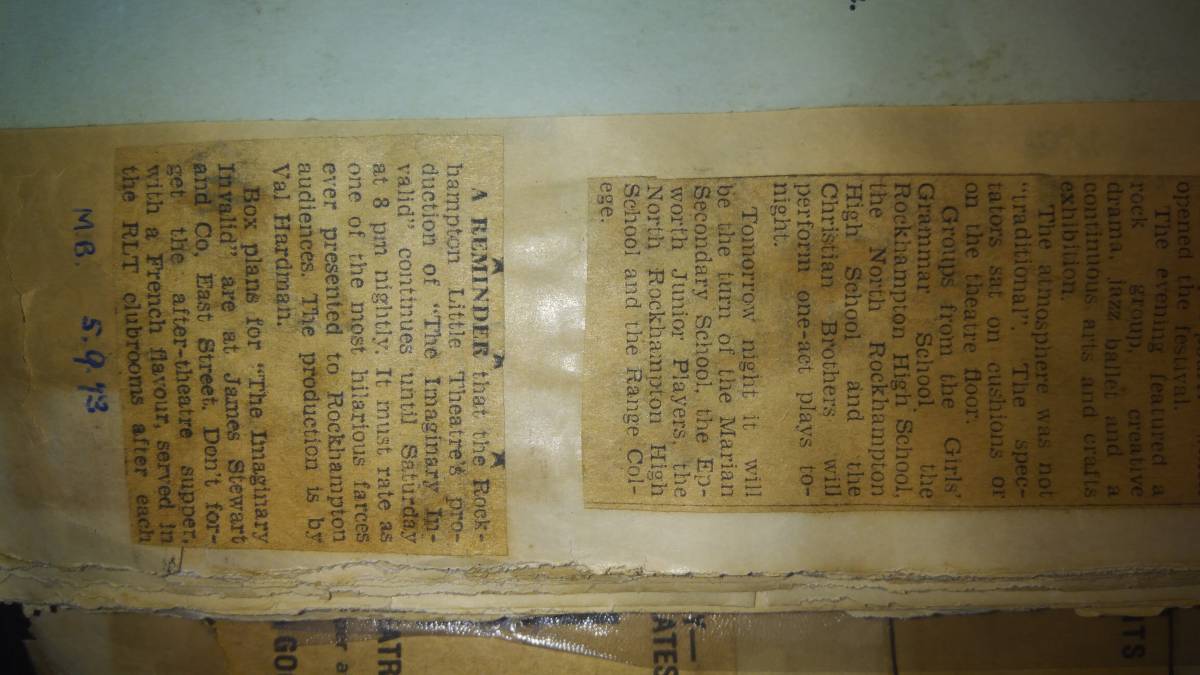 opened the festival.
The evening featured a
rock group, creative
drama, jazz ballet and a
continuous arts and crafts
exhibition.
The atmosphere was not
"traditional". The spec-
tators sat on cushions or
on the theatre floor.
Groups from the Girls'
Grammar School, the
Rockhampton High School,
the North Rockhampton
High School and the
Christian Brothers will
perform one-act plays to-
night.
Tomorrow night it will
be the turn of the Marian
Secondary School, the Ep-
worth Junior Players, the
North Rockhampton High
School and the Range Col-
ege.
★ ★ ★
A REMINDER that the Rock-
hampton Little Theatre's pro-
duction of "The Imaginary In-
valid" continues until Saturday
at 8 pm nightly. It must rate as
one of the most hilarious farces
ever presented to Rockhampton
audiences. The production is by
Val Hardman.
Box plans for "The Imaginary
Invalid" are at James Stewart
and Co, East Street. Don't for-
get the after-theatre supper,
with a French flavour, served in
the RLT clubrooms after each
MB. 5.9.73
ITS
ATES
ATR
GO